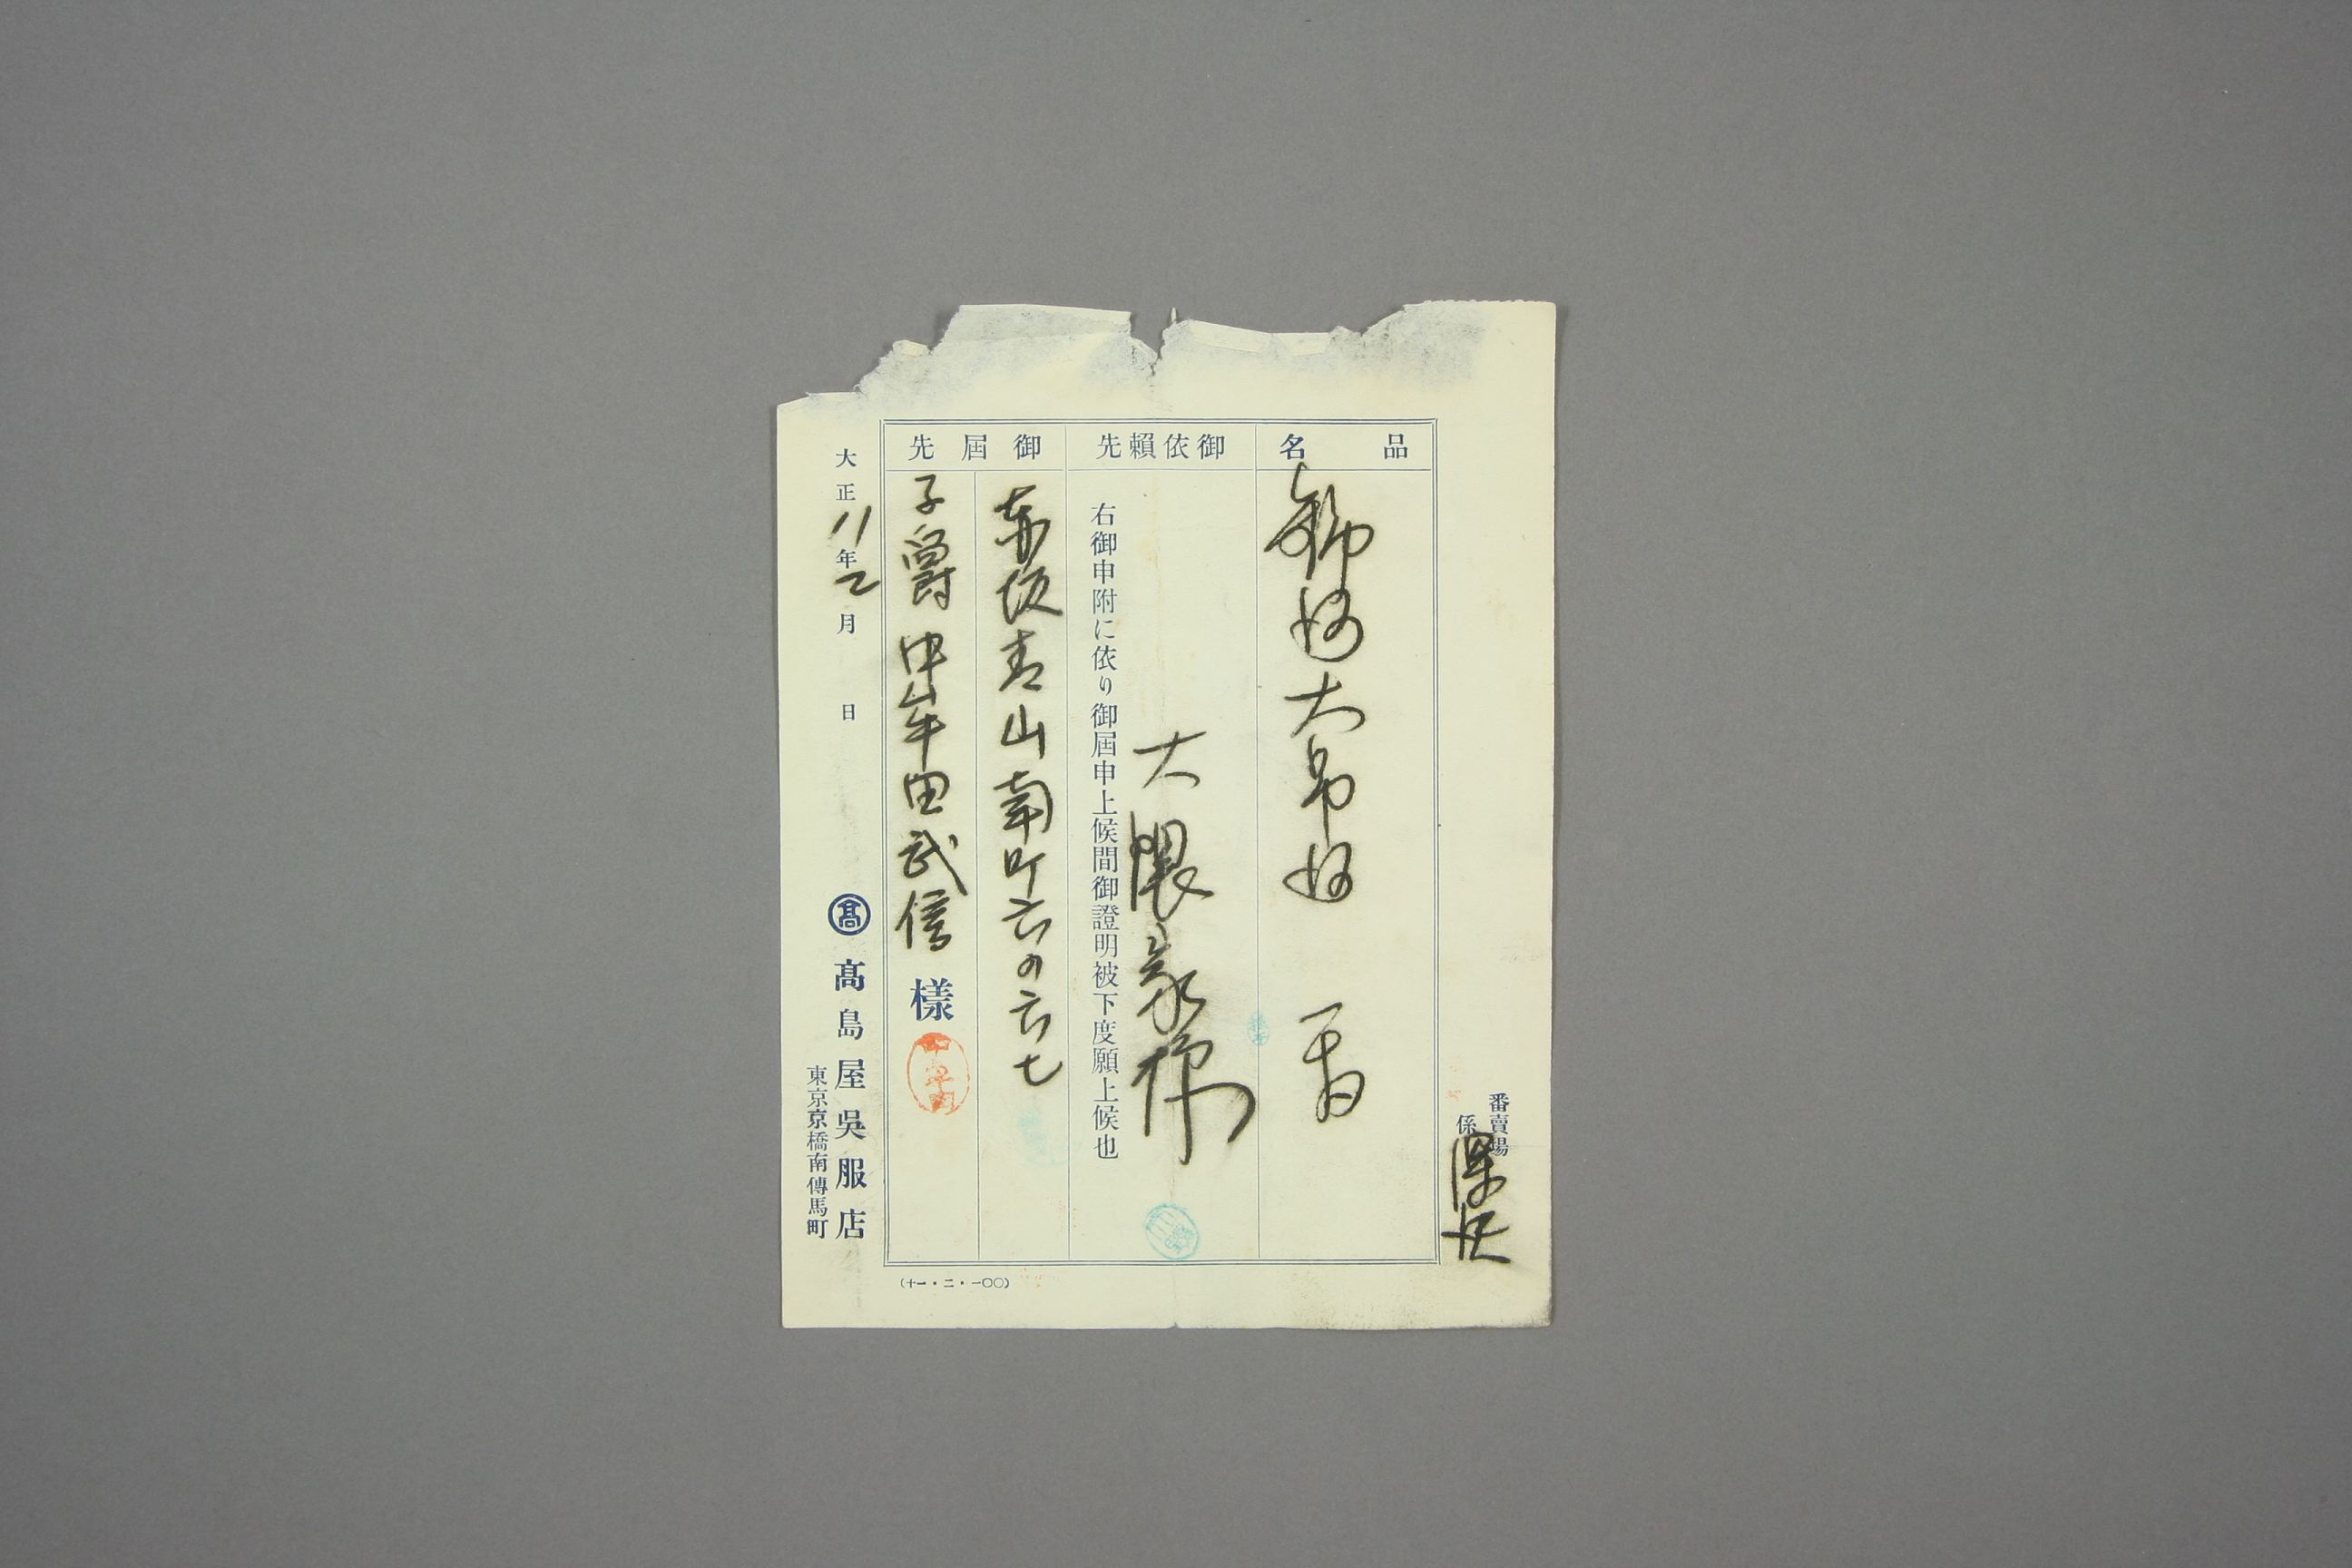 番賣場
係
品名
御依賴先
大隈家様
右御申附に依り御屆申上候間御證明被下度願上候也
御屆先
赤坂青山南町六の六七
子爵 中牟田武信 樣
大正11年2月 日
髙 髙島屋吳服店
東京京橋南傳馬町
(十一・二・一〇〇)